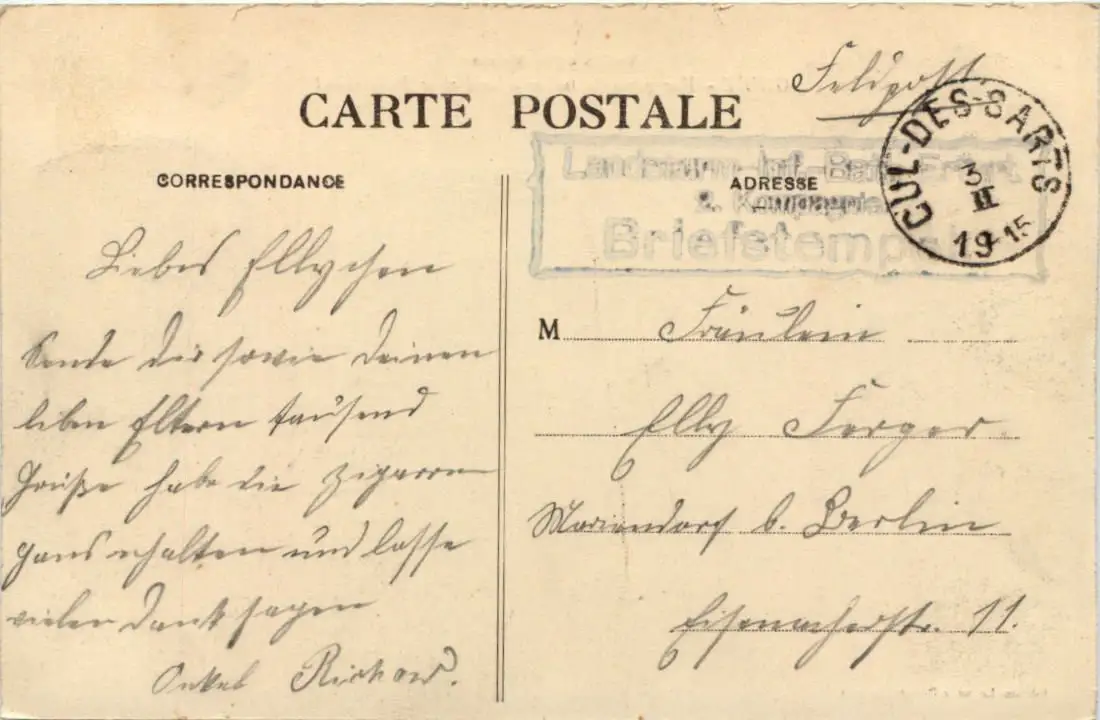 Feldpost
CARTE POSTALE
CUL-DES-SARTS
3
II
19-15
Landsturm-Inf.-Batl. Erfurt
2. Kompagnie
Briefstempel
CORRESPONDANCE
ADRESSE
Liebes Ellychen
Sende dir sowie deinen
lieben Eltern tausend
Grüße habe die Zigarren
erhalten und lasse
vielen Dank sagen
Onkel Richard.
M Fräulein
Elly Ferger
Mariendorf b. Berlin
Eisenacherstr. 11.